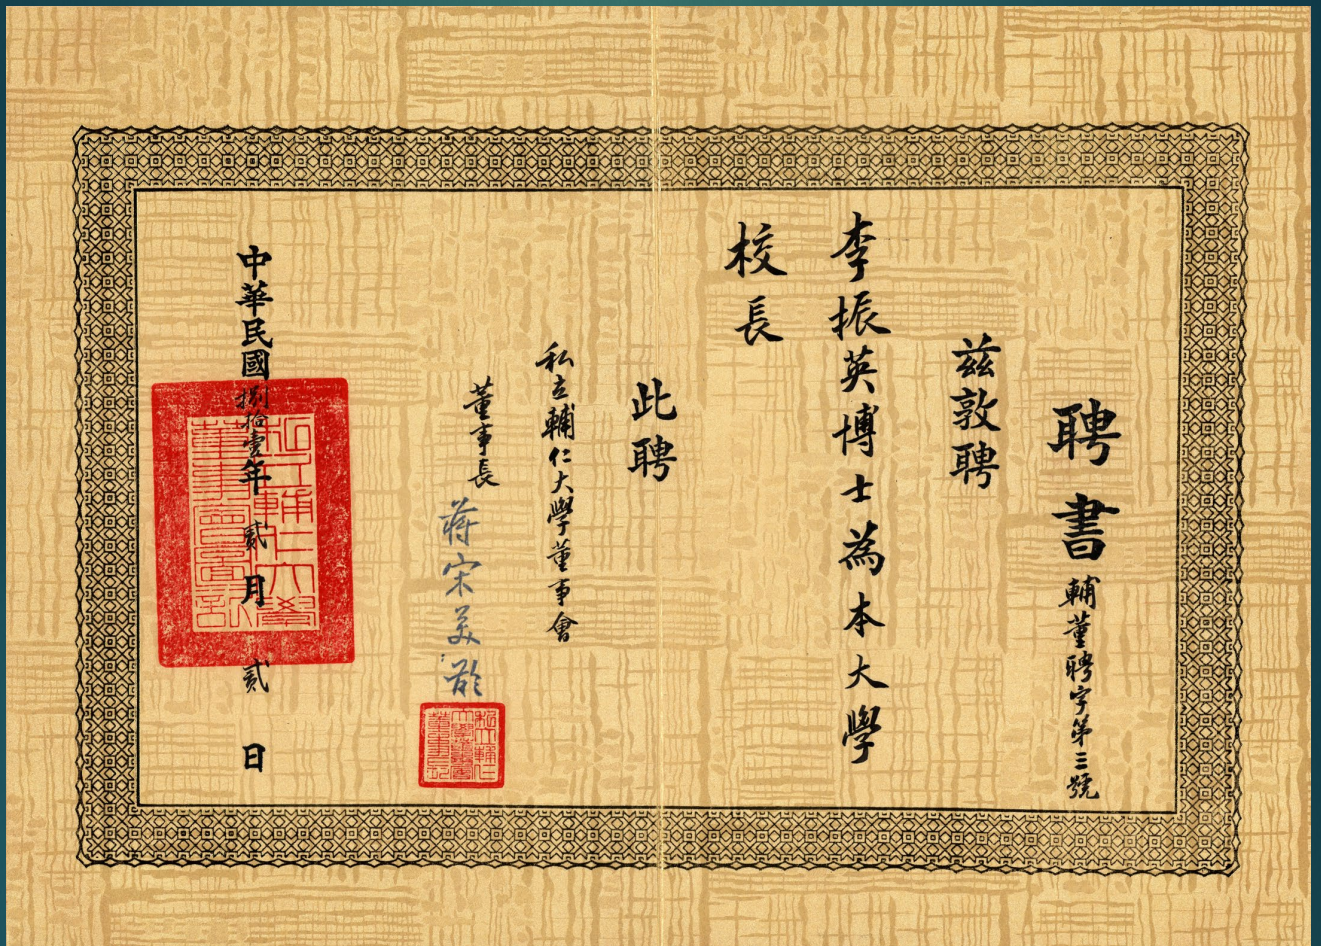 聘書
輔董聘字第三號
茲敦聘
李振英博士為本大學
校長
此聘
私立輔仁大學董事會
董事長
蔣宋美齡
中華民國捌拾壹年貳月貳日
私立輔仁大學
董事會圖記